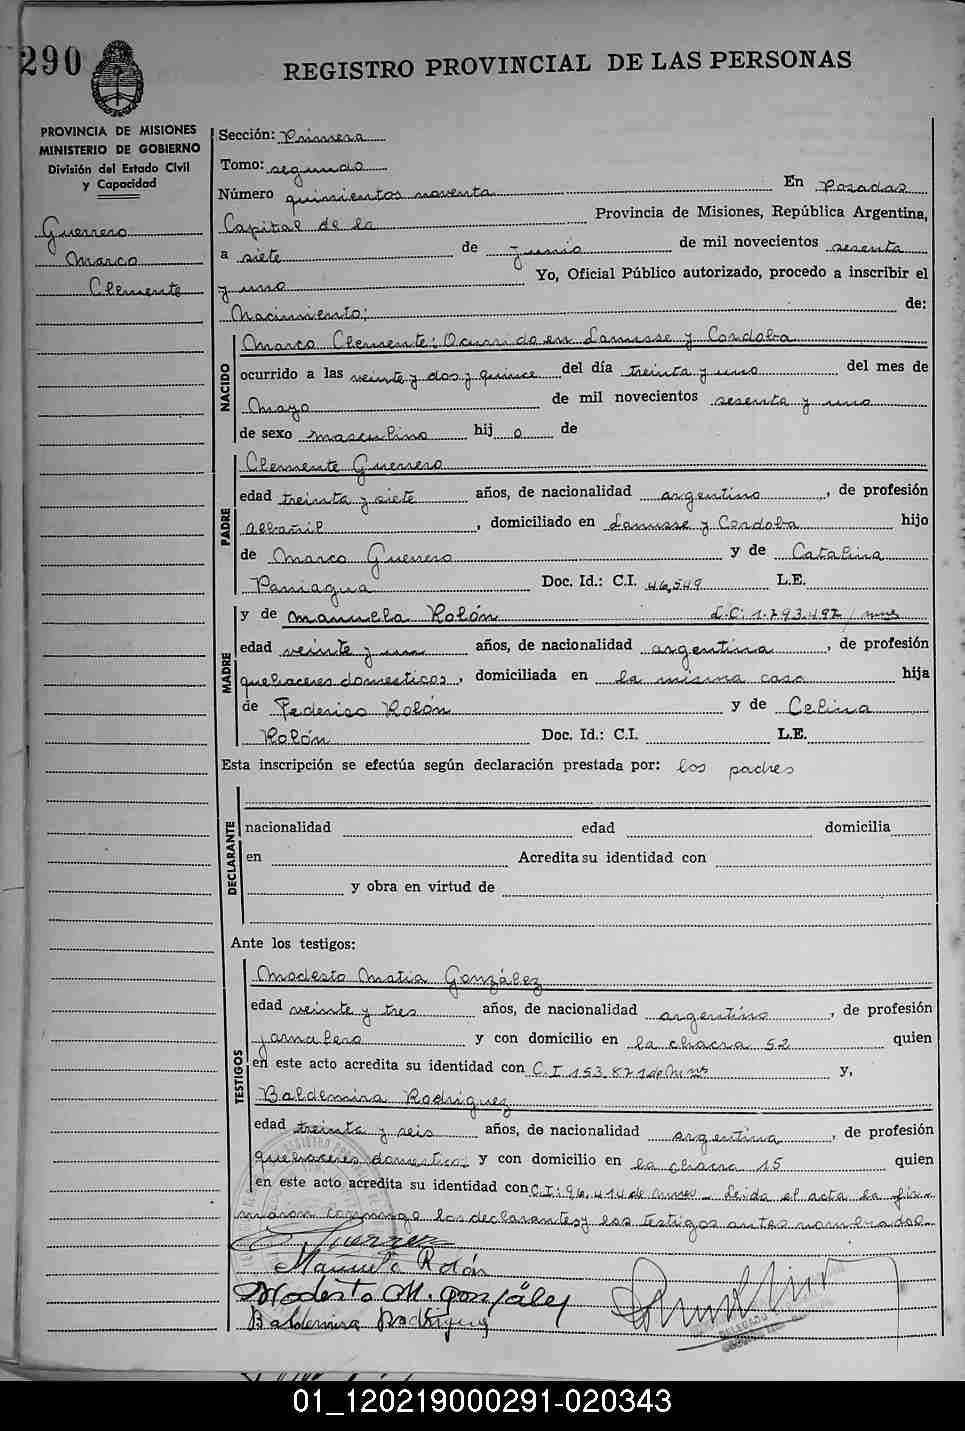 290
REGISTRO PROVINCIAL DE LAS PERSONAS
PROVINCIA DE MISIONES
MINISTERIO DE GOBIERNO
División del Estado Civil
y Capacidad
Guerrero
Marco
Clemente
Sección: Primera
Tomo: segundo
Número quinientos noventa En Posadas
Capital de la Provincia de Misiones, República Argentina,
a siete de junio de mil novecientos sesenta
y uno Yo, Oficial Público autorizado, procedo a inscribir el
Nacimiento; de:
NACIDO
Marco Clemente; Ocurrido en Lanusse y Cordoba
ocurrido a las veinte y dos y quince del día treinta y uno del mes de
Mayo de mil novecientos sesenta y uno
de sexo masculino hij o de
PADRE
Clemente Guerrero
edad treinta y siete años, de nacionalidad argentino, de profesión
albañil, domiciliado en Lanusse y Cordoba hijo
de Marco Guerrero y de Catalina
Paniagua Doc. Id.: C.I. 46.549 L.E.
MADRE
y de Manuela Rolón L.C. 1.793.492/mnes
edad veinte y un años, de nacionalidad argentina, de profesión
quehaceres domesticos, domiciliada en la misma casa hija
de Federico Rolón y de Celina
Rolón Doc. Id.: C.I. L.E.
Esta inscripción se efectúa según declaración prestada por: los padres
DECLARANTE
nacionalidad edad domicilia
en Acredita su identidad con
y obra en virtud de
Ante los testigos:
TESTIGOS
Modesto Matia González
edad veinte y tres años, de nacionalidad argentino, de profesión
jornalero y con domicilio en la chacra 52 quien
en este acto acredita su identidad con C.I 153.821 de Mnes y,
Baldemira Rodriguez
edad treinta y seis años, de nacionalidad argentina, de profesión
quehaceres domestico y con domicilio en la chacra 15 quien
en este acto acredita su identidad con C.I: 96.414 de mnes_ Leida el acta la fir-
maron conmigo los declarantes y los testigos antes nombrados.
C Guerrero
Manuela Rolón
Modesto M. González
Baldemira Rodriguez
01_120219000291-020343